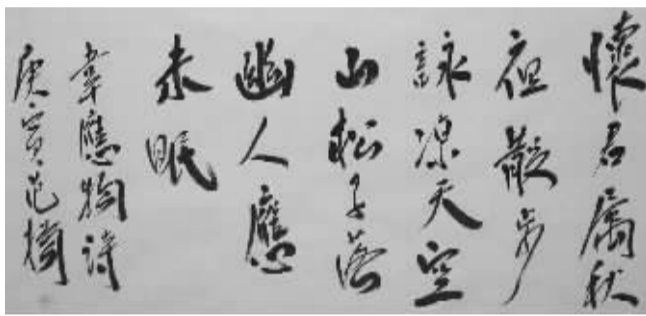 懷君属秋
夜散步
詠凉天空
山松子落
幽人應
未眠
韋應物诗
庚寅范